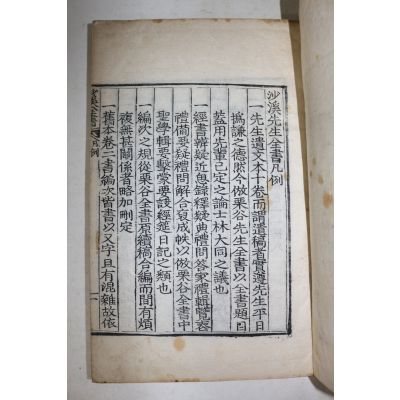 沙溪先生全書凡例
一先生遺文本十卷而謂遺稿者實遵先生平日
撝謙之德然今倣栗谷先生全書以全書題目
葢用先輩已定之論士林大同之議也
一經書辨疑近思錄釋疑典禮問答家禮輯覽喪
禮備要疑禮問解合裒成帙以倣栗谷全書中
聖學輯要擊蒙要訣經筵日記之類也
一編次之規從栗谷全書原續稿合編而間有煩
複無甚關係者略加刪定
一舊本卷二書編次皆書以又字且有混雜故依
凡例
一